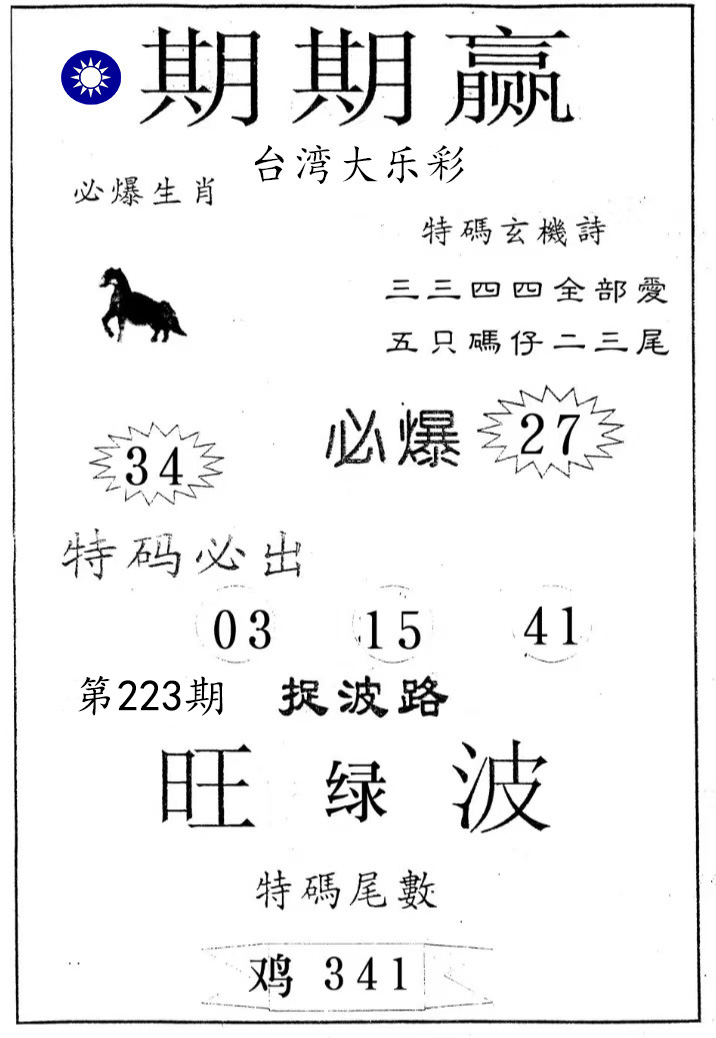 期期赢
台湾大乐彩
必爆生肖
特碼玄機詩
三三四四全部愛
五只碼仔二三尾
34
必爆 27
特码必出
03 15 41
第223期 捉波路
旺绿波
特碼尾數
鸡 341